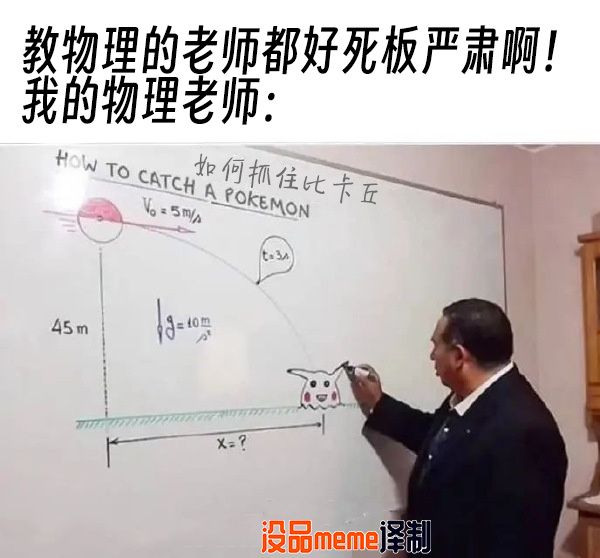 教物理的老师都好死板严肃啊！
我的物理老师：
HOW TO CATCH A POKEMON
如何抓住比卡丘
V₀ = 5 m/s
t = 3s
45 m
g = 10 m/s²
x = ?
没品meme译制